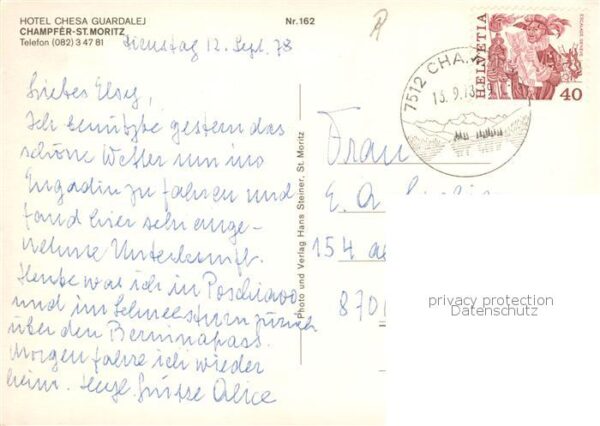 HOTEL CHESA GUARDALEJ
CHAMPFÈR-ST. MORITZ
Telefon (082) 3 47 81
Nr. 162
Dienstag 12. Sept. 78
Liebes Elsy,
Ich benützte gestern das
schöne Wetter um ins
Engadin zu fahren und
fand hier sehr ange-
nehme Unterkunft.
Heute war ich in Poschiavo
und im Schneesturm zurück
über den Berninapass.
Morgen fahre ich wieder
heim. Herzl. Grüsse Alice
Photo und Verlag Hans Steiner, St. Moritz
Frau
E. A.
154
870
7512 CHA
13.9.78
HELVETIA
ESCALADE GENÈVE
40
privacy protection
Datenschutz